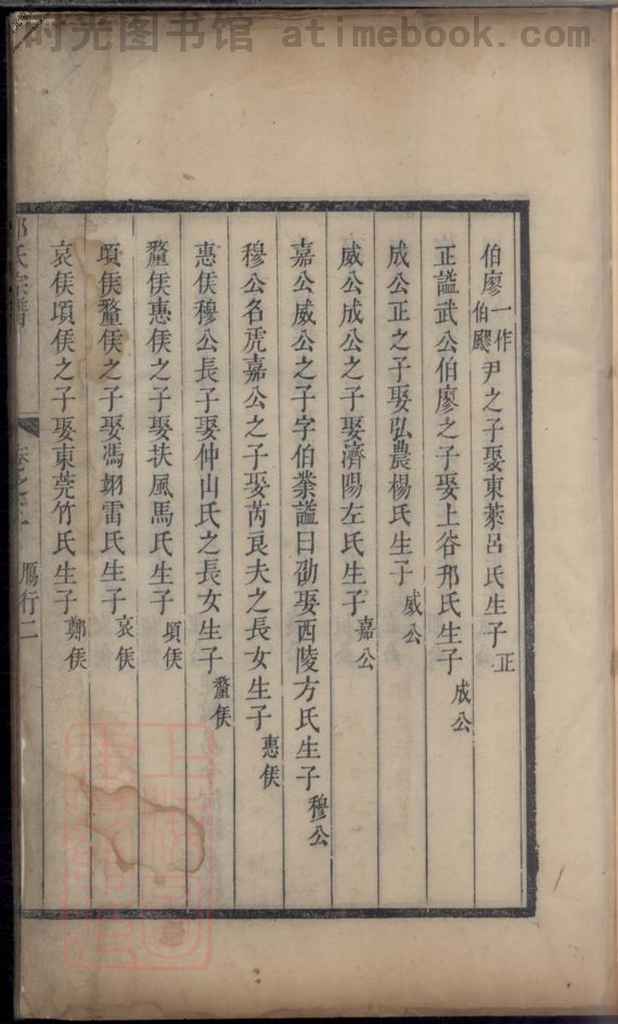 时光图书馆 atimebook.com
伯廖一作伯飂尹之子娶東萊呂氏生子正
正謚武公伯廖之子娶上谷邢氏生子成公
成公正之子娶弘農楊氏生子威公
威公成公之子娶濟陽左氏生子嘉公
嘉公威公之子字伯業謚曰勛娶西陵方氏生子穆公
穆公名虎嘉公之子娶芮良夫之長女生子惠侯
惠侯穆公長子娶仲山氏之長女生子釐侯
釐侯惠侯之子娶扶風馬氏生子頃侯
頃侯釐侯之子娶馮翊雷氏生子哀侯
哀侯頃侯之子娶東莞竹氏生子鄭侯
氏宗譜 卷之 鴈行二